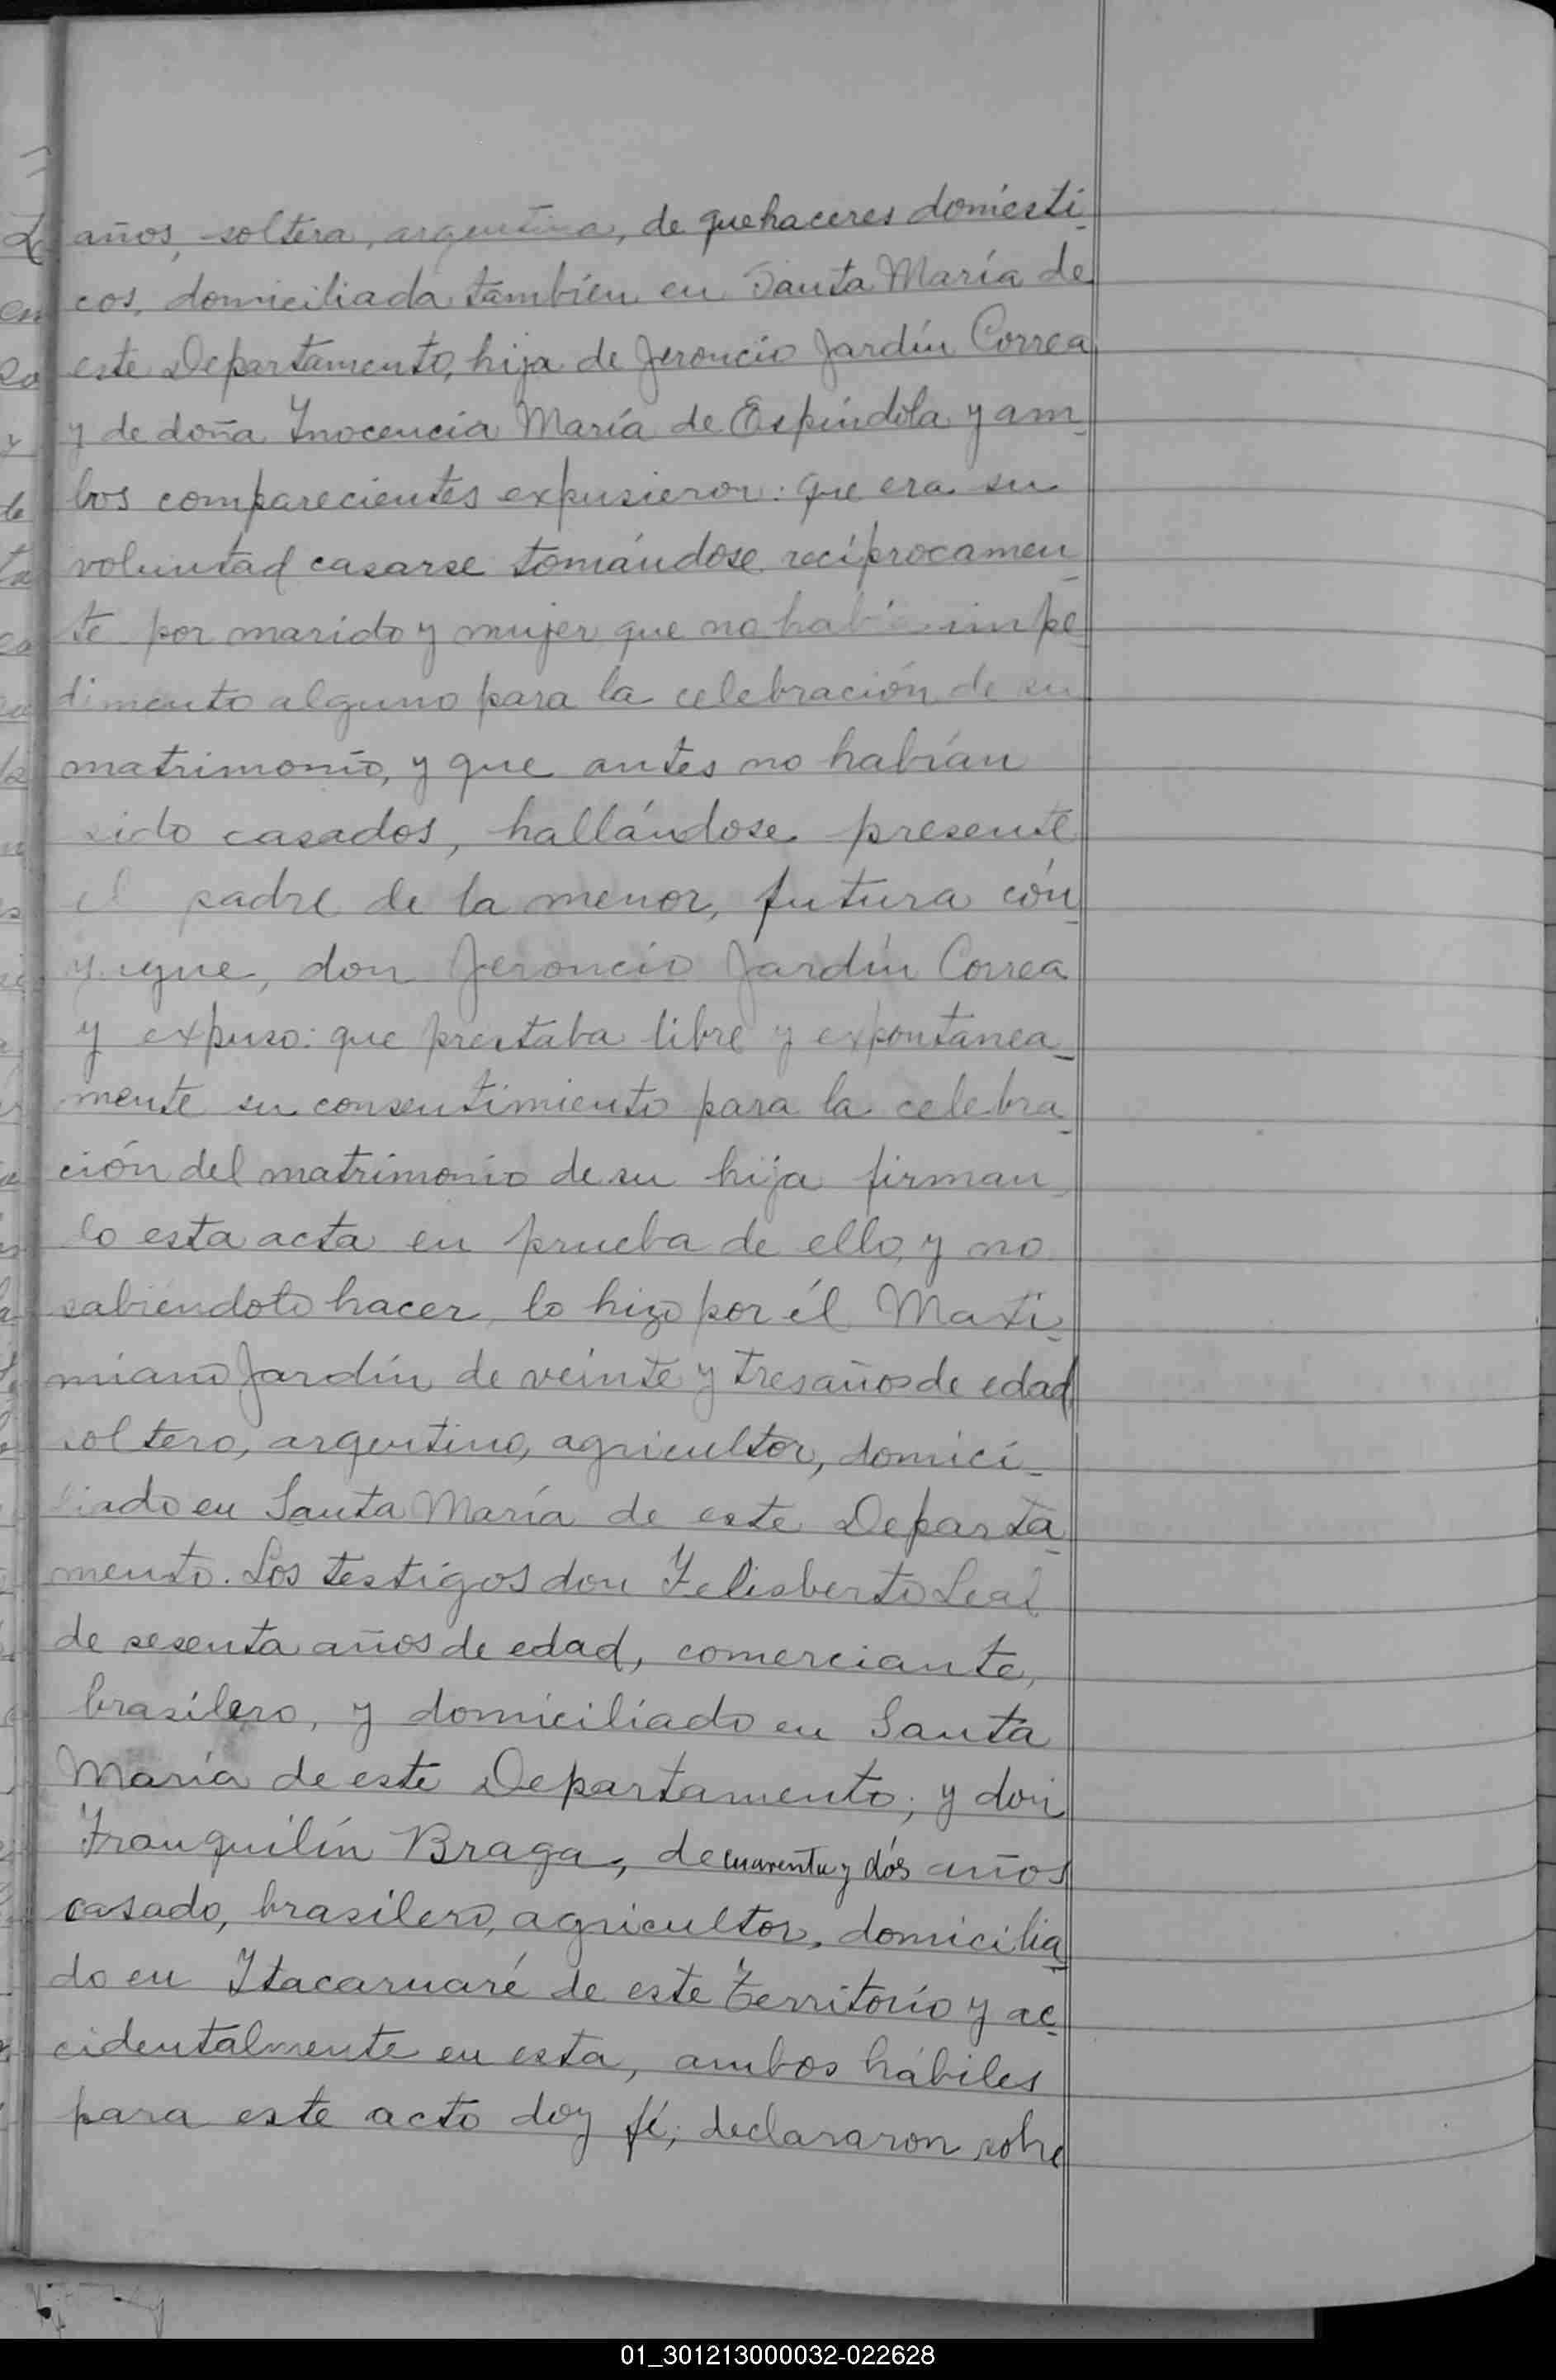 años, soltera, argentina, de quehaceres domésti-
cos, domiciliada también en Santa María de
este Departamento, hija de Jeroncio Jardín Correa
y de doña Inocencia María de Espíndola y am-
bos comparecientes expusieron: que era su
voluntad casarse tomándose recíprocamen-
te por marido y mujer que no había impe-
dimento alguno para la celebración de su
matrimonio, y que antes no habían
sido casados, hallándose presente
el padre de la menor, futura cón-
yugue, don Jeroncio Jardín Correa
y expuso: que prestaba libre y expontanea-
mente su consentimiento para la celebra-
ción del matrimonio de su hija firman-
do esta acta en prueba de ello, y no
sabiéndolo hacer, lo hizo por él Maxi-
miano Jardín de veinte y tres años de edad,
soltero, argentino, agricultor, domici-
liado en Santa María de este Departa-
mento. Los testigos don Felisberto Leal
de sesenta años de edad, comerciante,
brasilero, y domiciliado en Santa
María de este Departamento; y don
Tranquilín Braga, de cuarenta y dós años
casado, brasilero, agricultor, domicilia-
do en Itacaruaré de este Territorio y ac-
cidentalmente en esta, ambos hábiles
para este acto doy fé; declararon sobre
01_301213000032-022628